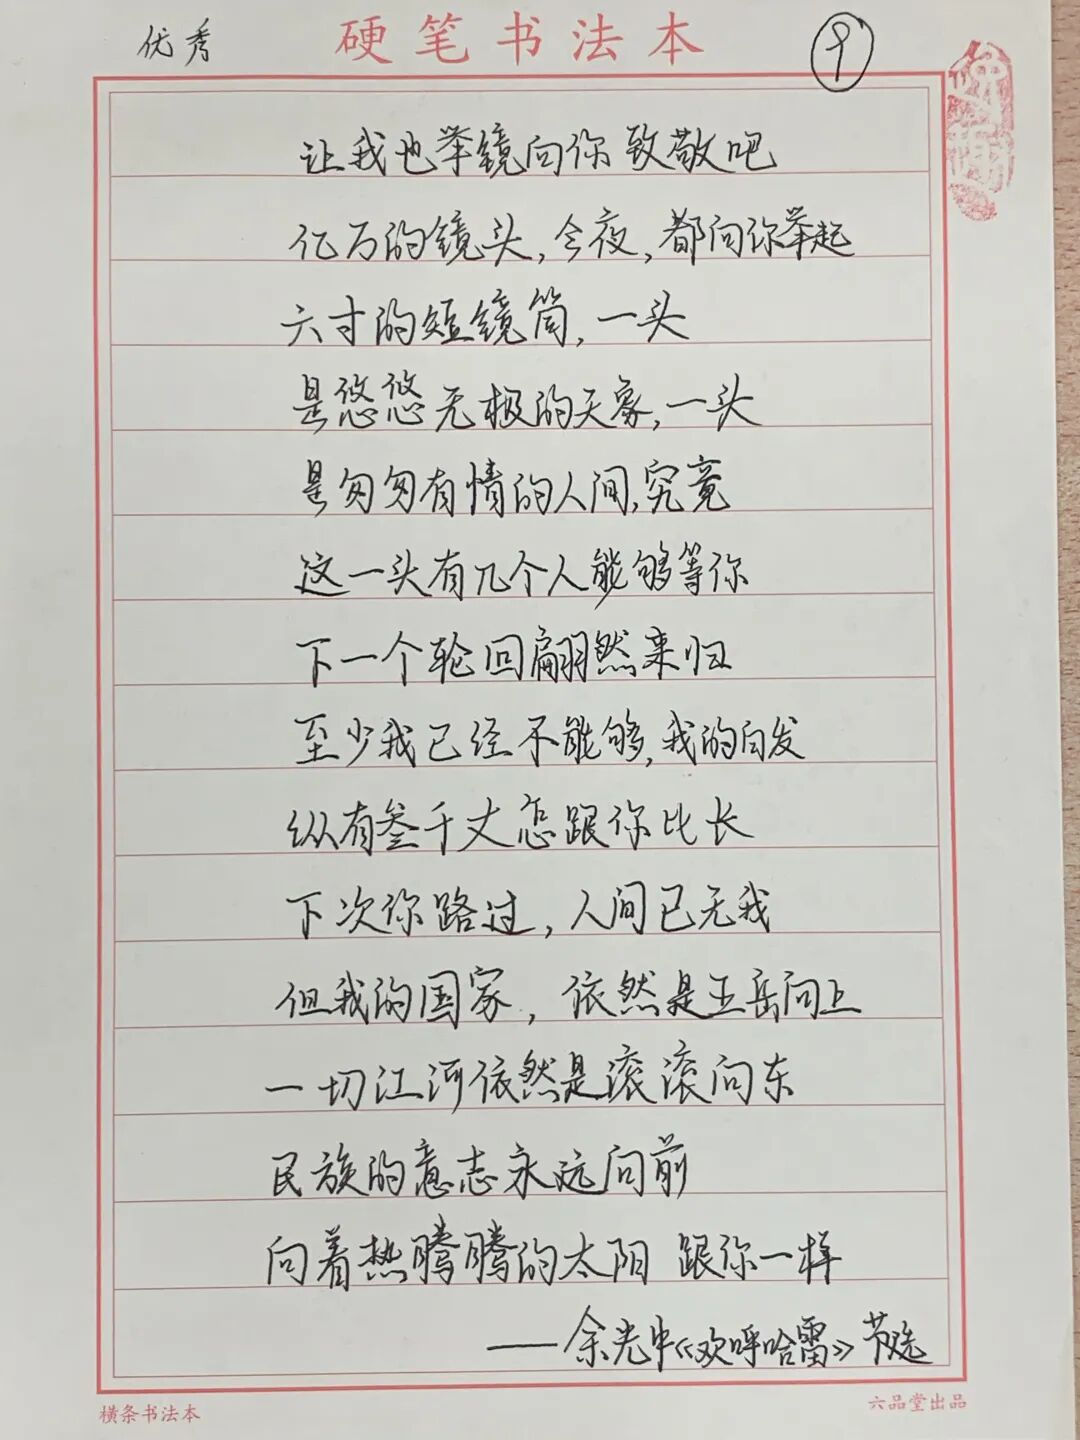 优秀
硬笔书法本
9
让我也举镜向你致敬吧
亿万的镜头,今夜,都向你举起
六寸的短镜筒,一头
是悠悠无极的天象,一头
是匆匆有情的人间,究竟
这一头有几个人能够等你
下一个轮回翩然来归
至少我已经不能够,我的白发
纵有叁千丈怎跟你比长
下次你路过,人间已无我
但我的国家,依然是五岳向上
一切江河依然是滚滚向东
民族的意志永远向前
向着热腾腾的太阳 跟你一样
——余光中《欢呼哈雷》节选
横条书法本
六品堂出品